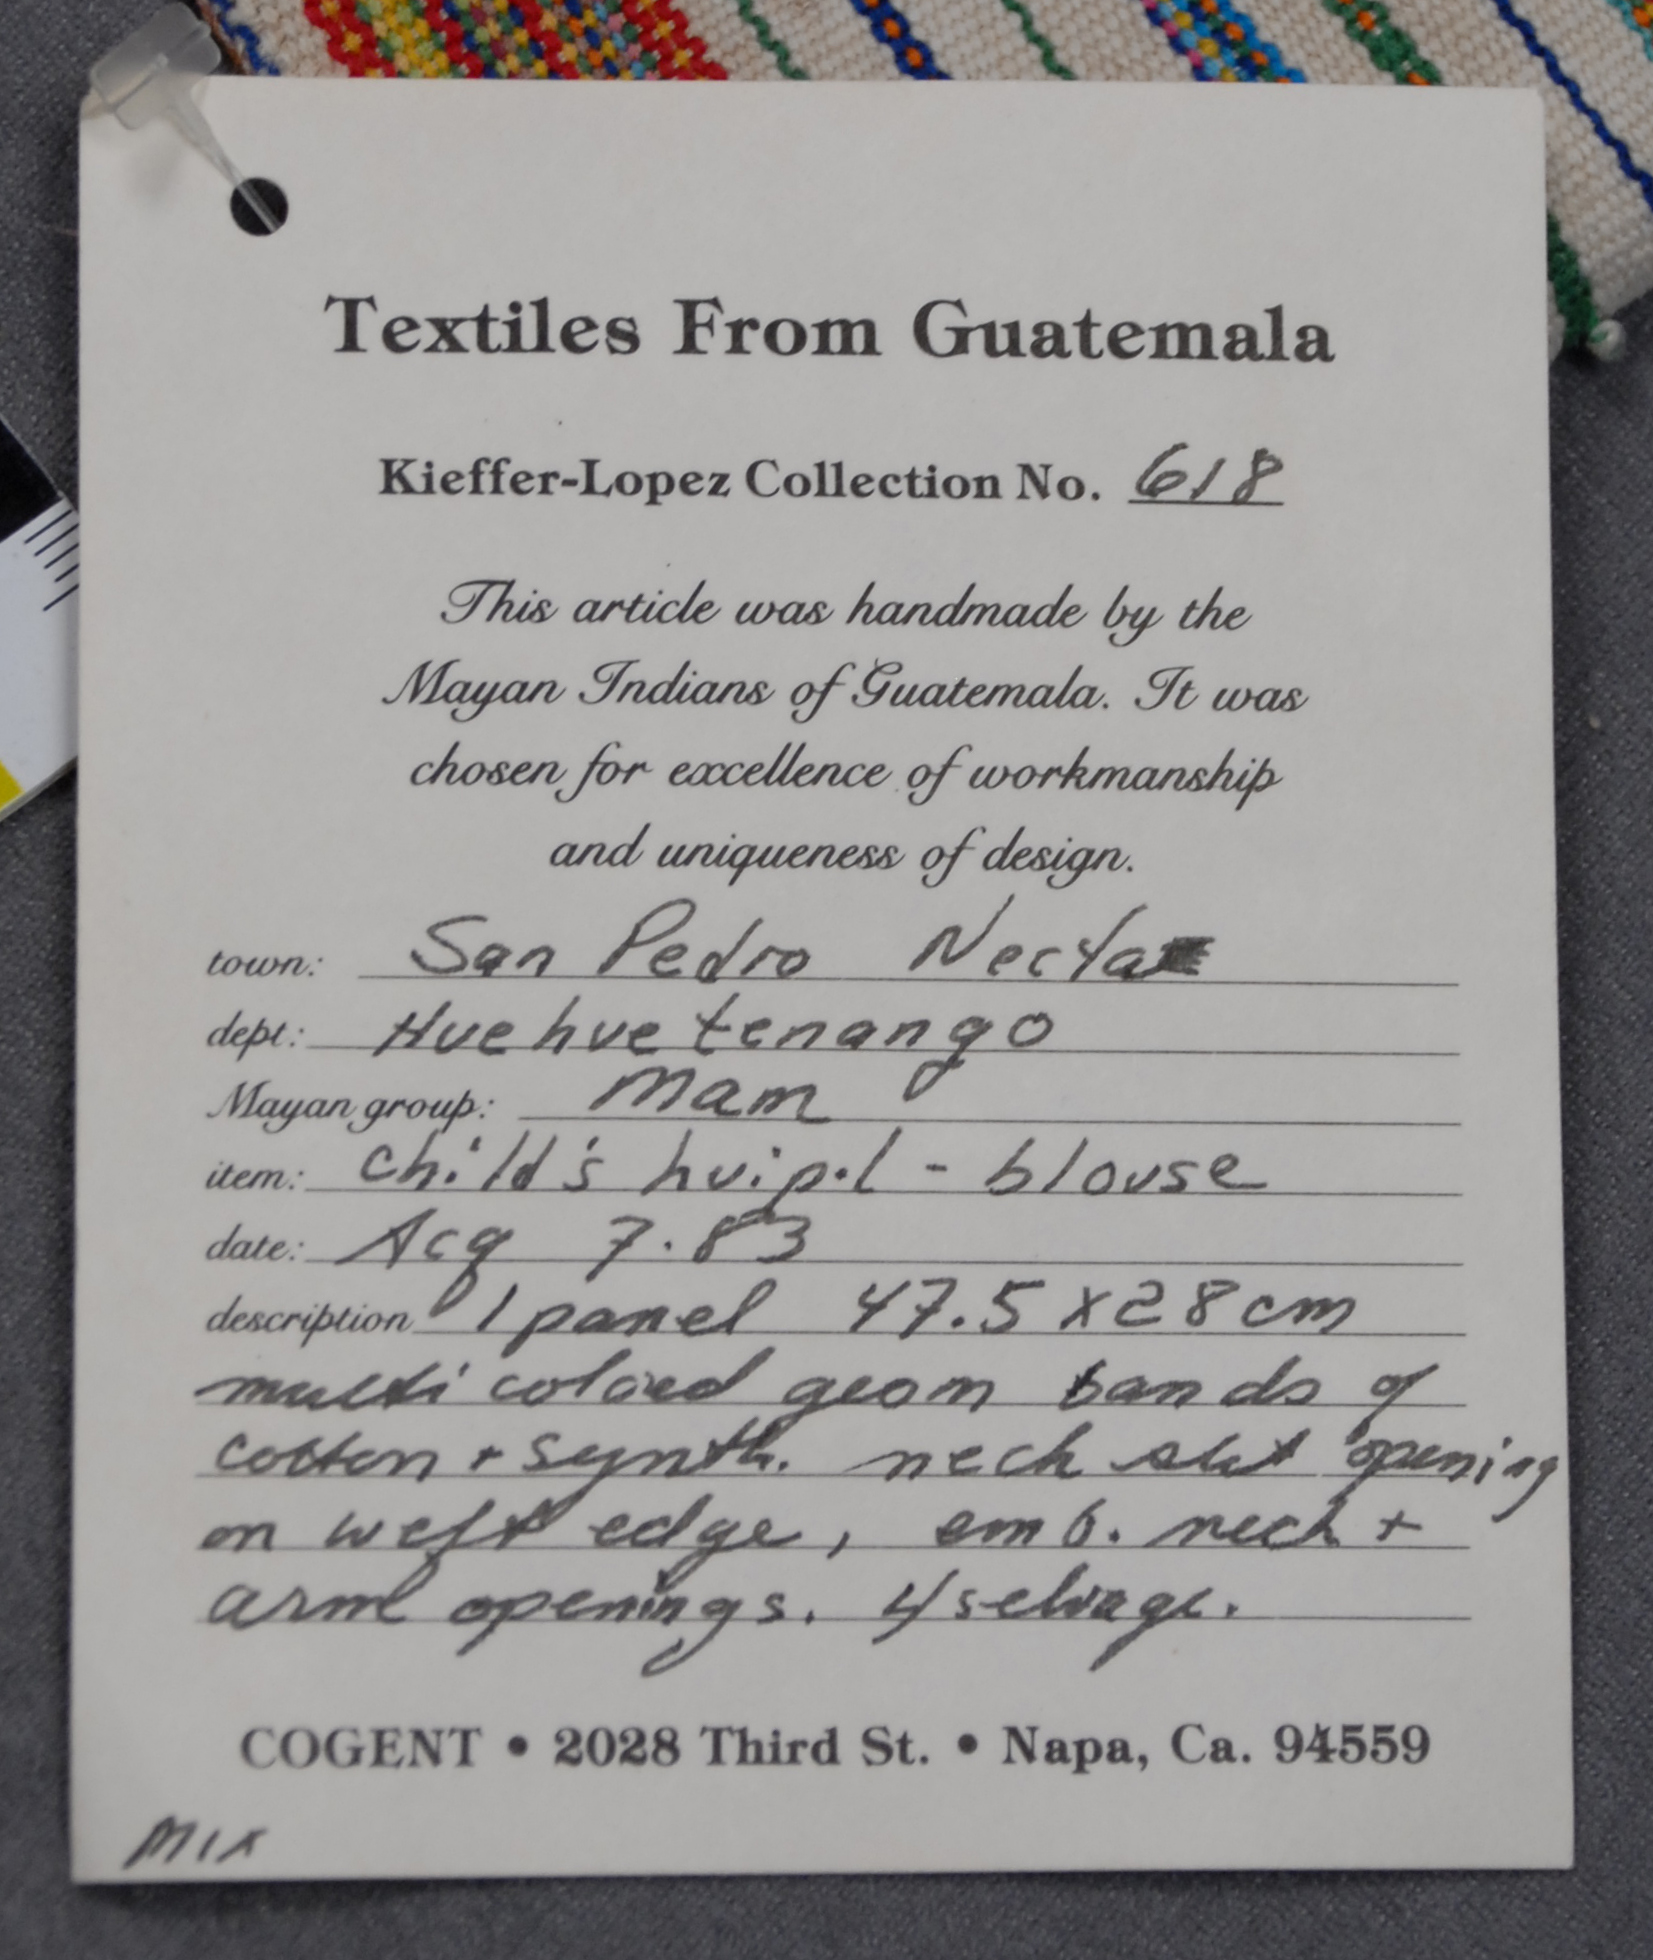 Textiles From Guatemala
Kieffer-Lopez Collection No. 618
This article was handmade by the
Mayan Indians of Guatemala. It was
chosen for excellence of workmanship
and uniqueness of design.
town: San Pedro Necta
dept: Huehuetenango
Mayan group: Mam
item: child's huipil - blouse
date: Acq 7.83
description 1 panel 47.5 x 28 cm
multi colored geom bands of
cotton + synth. neck slit opening
on weft edge, emb. neck +
arm openings. 4 selvage.
COGENT • 2028 Third St. • Napa, Ca. 94559
MIX